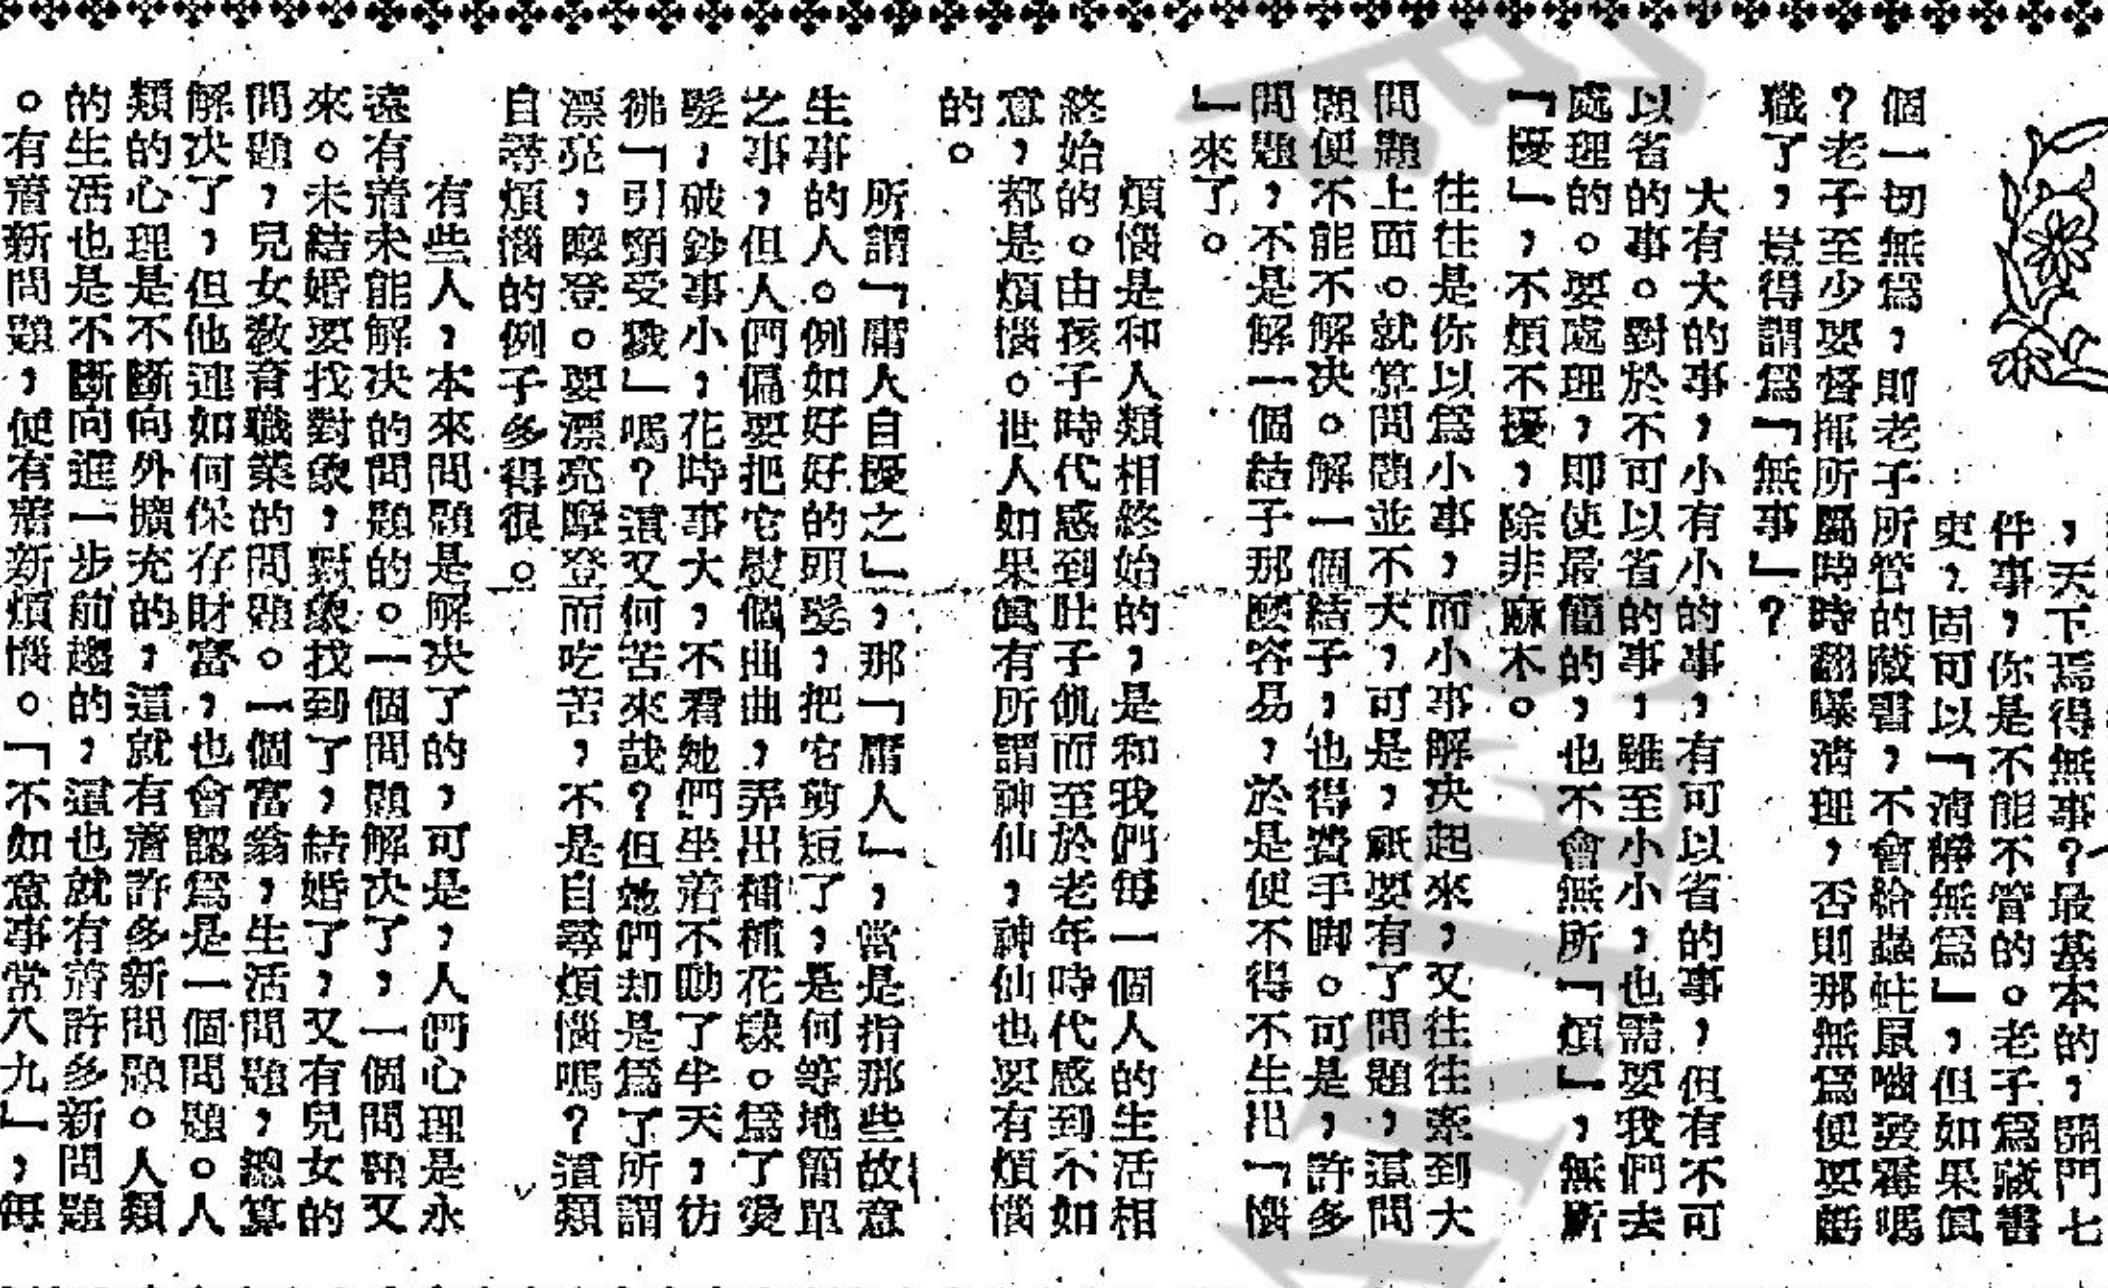 ，天下焉得無事？最基本的，開門七
件事，你是不能不管的。老子爲藏書
吏，固可以「清靜無爲」，但如果眞
個一切無爲，則老子所管的藏書，不會給蟲蛀鼠嚙發霉嗎
？老子至少要督揮所屬時時翻曝清理，否則那無爲便要虧
職了，豈得謂爲「無事」？
大有大的事，小有小的事，有可以省的事，但有不可
以省的事。對於不可以省的事，雖至小小，也需要我們去
處理的。要處理，即使最簡的，也不會無所「煩」，無所
「擾」，不煩不擾，除非麻木。
往往是你以爲小事，而小事解決起來，又往往牽到大
問題上面。就算問題並不大，可是，祇要有了問題，這問
題便不能不解決。解一個結子，也得費手脚。可是，許多
問題，不是解一個結子那麼容易，於是便不得不生出「惱
」來了。
煩惱是和人類相終始的，是和我們每一個人的生活相
終始的。由孩子時代感到肚子飢而至於老年時代感到不如
意，都是煩惱。世人如果眞有所謂神仙，神仙也要有煩惱
的。
所謂「庸人自擾之」，那「庸人」，當是指那些故意
生事的人。例如好好的頭髮，把它剪短了，是何等地簡單
之事，但人們偏要把它熨個曲曲，弄出種種花樣。爲了愛
髮，破鈔事小，花時事大，不看她們坐着不動了半天，彷
彿「引頸受戮」嗎？這又何苦來哉？但她們却是爲了所謂
漂亮，摩登。要漂亮摩登而吃苦，不是自尋煩惱嗎？這類
自尋煩惱的例子多得很。
有些人，本來問題是解決了的，可是，人們心理是永
遠有着未能解決的問題的。一個問題解決了，一個問題又
來。未結婚要找對象，對象找到了，結婚了，又有兒女的
問題，兒女敎育職業的問題。一個富翁，生活問題，總算
解決了，但他連如何保存財富，也會認爲是一個問題。人
類的心理是不斷向外擴充的，這就有着許多新問題。人類
的生活也是不斷向進一步前趨的，這也就有着許多新問題
。有着新問題，便有着新煩惱。「不如意事常八九」，每